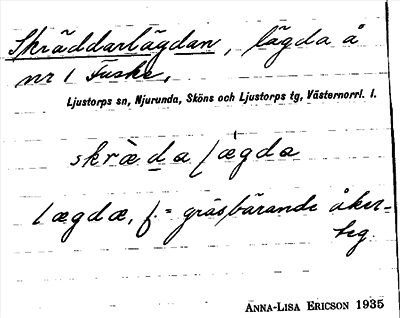 Skräddarlägdan, lägda å
nr 1 Fuske,
Ljustorps sn, Njurunda, Sköns och Ljustorps tg, Västernorrl. l.
skræ̀da lægda
lægdæ, f. = gräsbärande åker-
teg.
ANNA-LISA ERICSON 1935